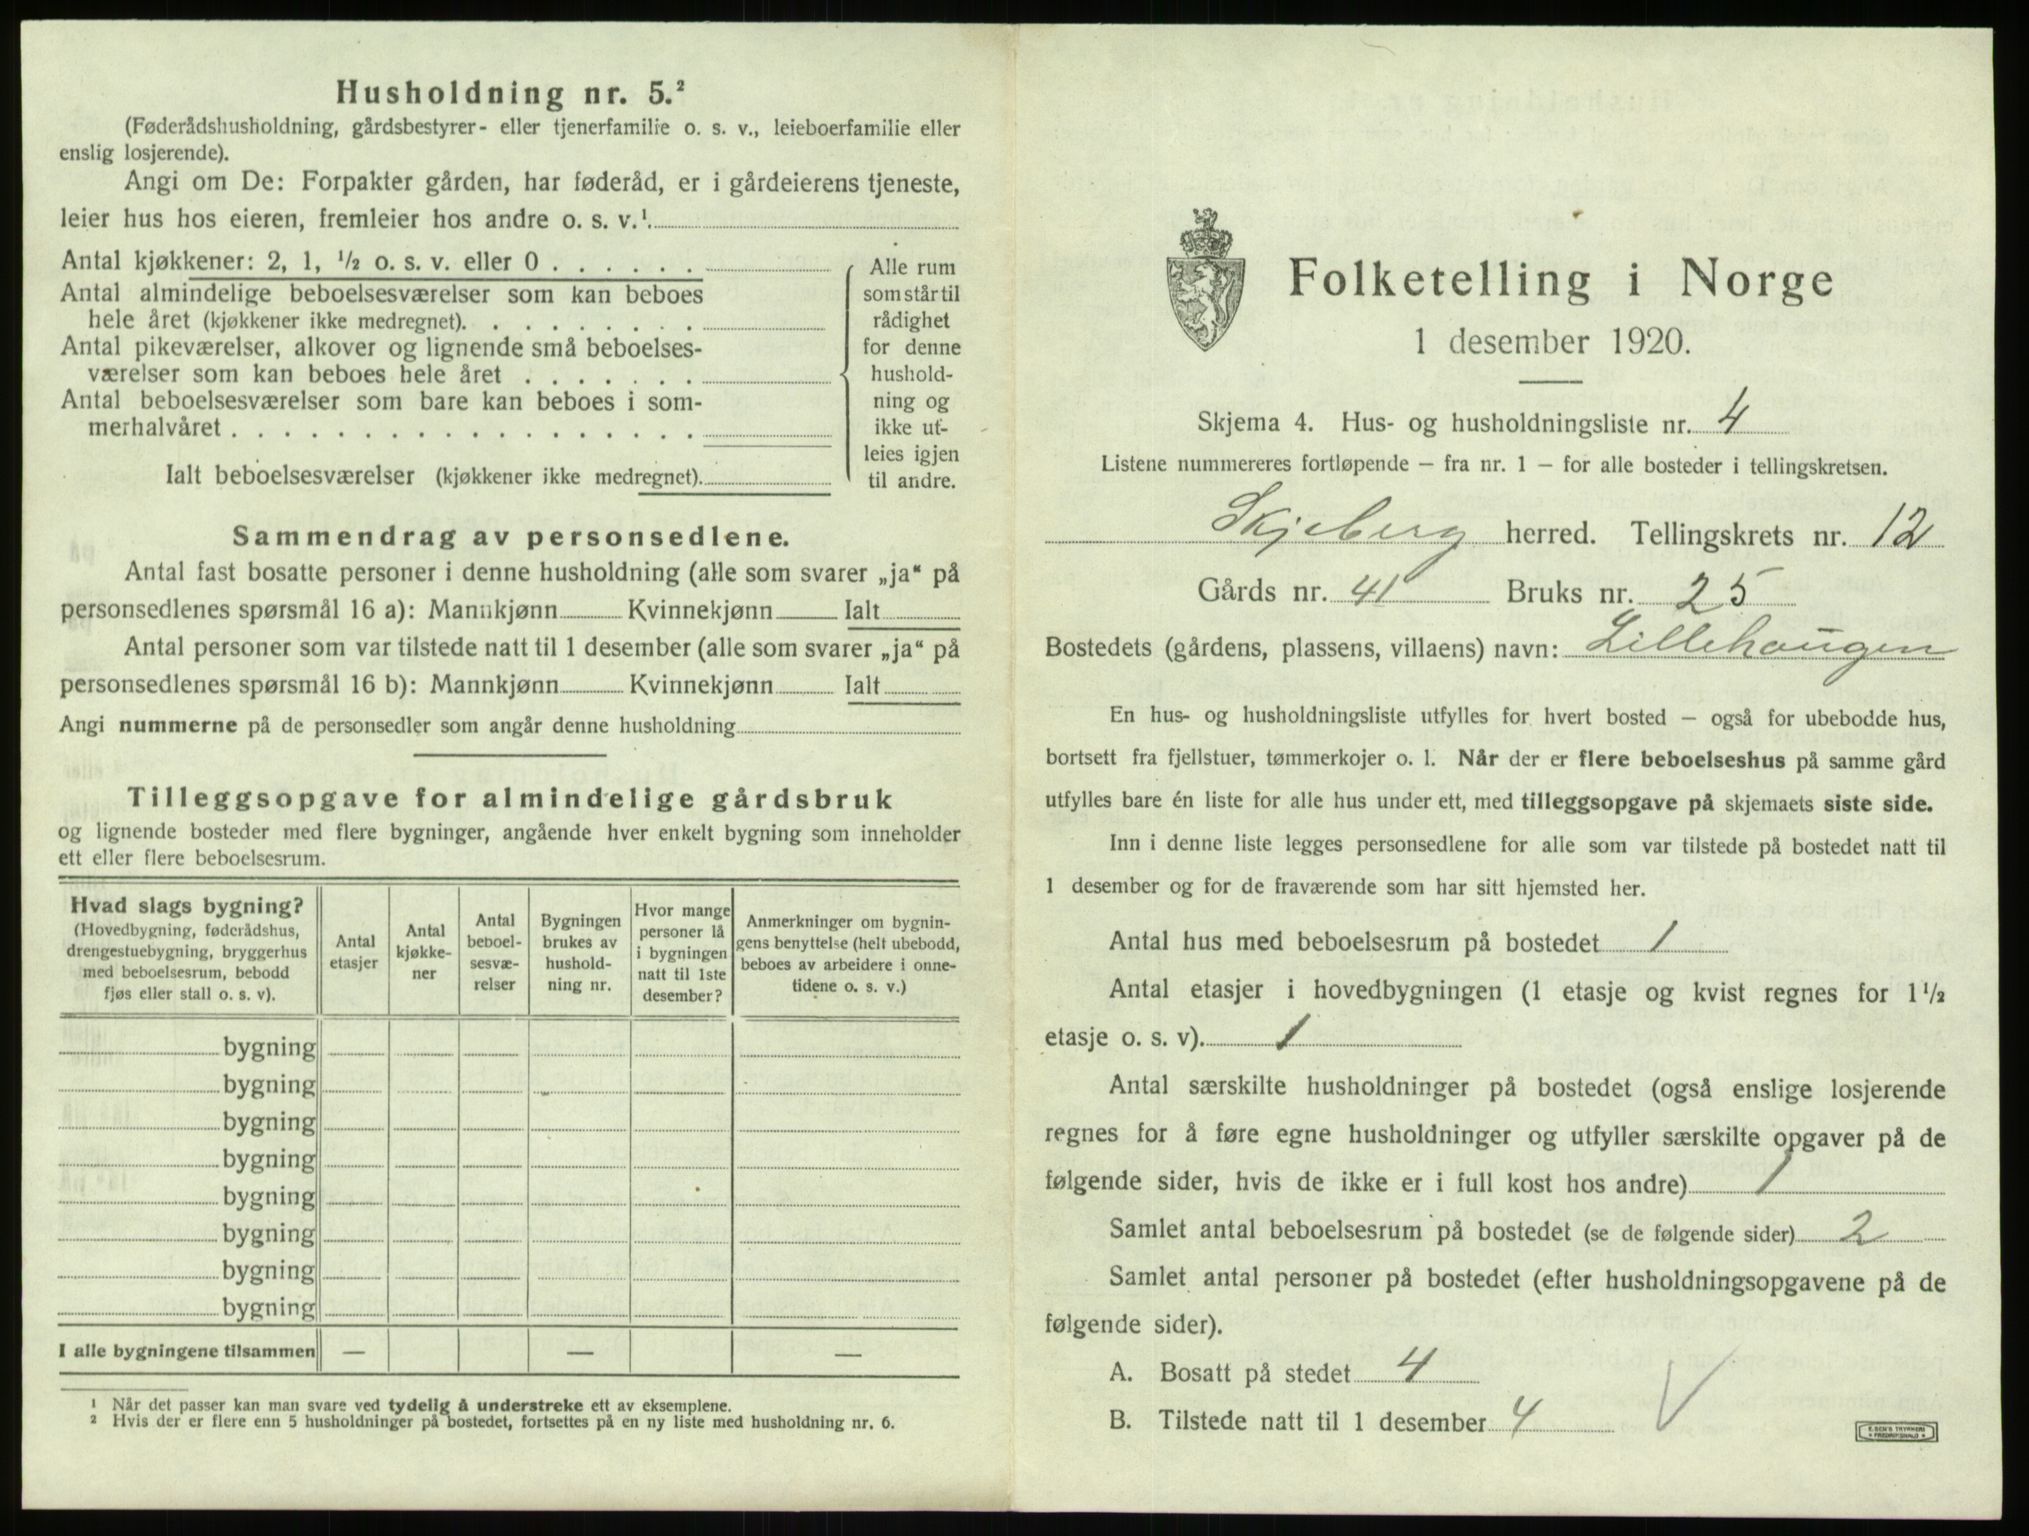 Husholdning nr. 5.²
(Føderådshusholdning, gårdsbestyrer- eller tjenerfamilie o. s. v., leieboerfamilie eller
enslig losjerende).
Angi om De: Forpakter gården, har føderåd, er i gårdeierens tjeneste,
leier hus hos eieren, fremleier hos andre o. s. v.¹
Antal kjøkkener: 2, 1, ½ o. s. v. eller 0 . . . . . .
Antal almindelige beboelsesværelser som kan beboes
hele året (kjøkkener ikke medregnet). . . . . . . . .
Antal pikeværelser, alkover og lignende små beboelses-
værelser som kan beboes hele året . . . . . . .
Antal beboelsesværelser som bare kan beboes i som-
merhalvåret . . . . . . . . . . . . . . . . . .
Ialt beboelsesværelser (kjøkkener ikke medregnet).
Alle rum
som står til
rådighet
for denne
hushold-
ning og
ikke ut-
leies igjen
til andre.
Sammendrag av personsedlene.
Antal fast bosatte personer i denne husholdning (alle som svarer „ja“ på
personsedlenes spørsmål 16 a): Mannkjønn Kvinnekjønn Ialt
Antal personer som var tilstede natt til 1 desember (alle som svarer „ja“ på
personsedlenes spørsmål 16 b): Mannkjønn Kvinnekjønn Ialt
Angi nummerne på de personsedler som angår denne husholdning
Tilleggsopgave for almindelige gårdsbruk
og lignende bosteder med flere bygninger, angående hver enkelt bygning som inneholder
ett eller flere beboelsesrum.
Hvad slags bygning?
(Hovedbygning, føderådshus,
drengestuebygning, bryggerhus
med beboelsesrum, bebodd
fjøs eller stall o. s. v).
Antal
etasjer
Antal
kjøkke-
ner
Antal
beboel-
sesvæ-
relser
Bygningen
brukes av
hushold-
ning nr.
Hvor mange
personer lå
i bygningen
natt til 1ste
desember?
Anmerkninger om bygnin-
gens benyttelse (helt ubebodd,
beboes av arbeidere i onne-
tidene o. s. v.)
bygning
bygning
bygning
bygning
bygning
bygning
bygning
bygning
I alle bygningene tilsammen — — —
¹ Når det passer kan man svare ved tydelig å understreke ett av eksemplene.
² Hvis der er flere enn 5 husholdninger på bostedet, fortsettes på en ny liste med husholdning nr. 6.
Folketelling i Norge
1 desember 1920.
Skjema 4. Hus- og husholdningsliste nr. 4
Listene nummereres fortløpende – fra nr. 1 – for alle bosteder i tellingskretsen.
Skjeberg herred. Tellingskrets nr. 12
Gårds nr. 41 Bruks nr. 25
Bostedets (gårdens, plassens, villaens) navn: Lillehaugen
En hus- og husholdningsliste utfylles for hvert bosted – også for ubebodde hus,
bortsett fra fjellstuer, tømmerkojer o. l. Når der er flere beboelseshus på samme gård
utfylles bare én liste for alle hus under ett, med tilleggsopgave på skjemaets siste side.
Inn i denne liste legges personsedlene for alle som var tilstede på bostedet natt til
1 desember og for de fraværende som har sitt hjemsted her.
Antal hus med beboelsesrum på bostedet 1
Antal etasjer i hovedbygningen (1 etasje og kvist regnes for 1½
etasje o. s. v). 1
Antal særskilte husholdninger på bostedet (også enslige losjerende
regnes for å føre egne husholdninger og utfyller særskilte opgaver på de
følgende sider, hvis de ikke er i full kost hos andre) 1
Samlet antal beboelsesrum på bostedet (se de følgende sider) 2
Samlet antal personer på bostedet (efter husholdningsopgavene på de
følgende sider).
A. Bosatt på stedet 4
B. Tilstede natt til 1 desember 4